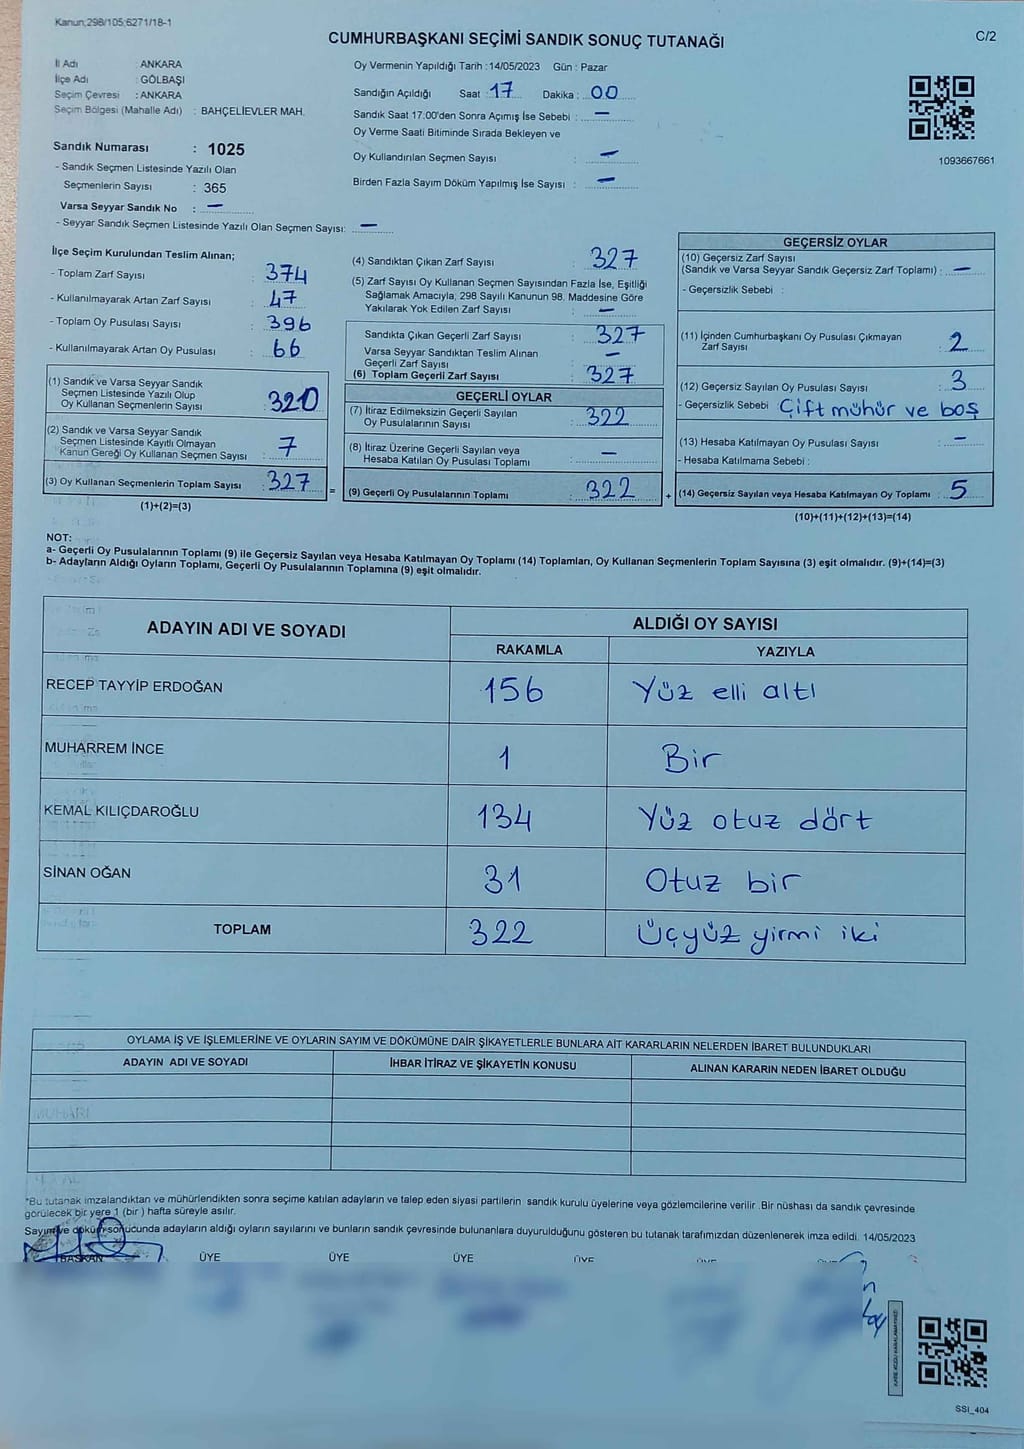 Kanun;298/105;6271/18-1
CUMHURBAŞKANI SEÇİMİ SANDIK SONUÇ TUTANAĞI
C/2
İl Adı : ANKARA
İlçe Adı : GÖLBAŞI
Seçim Çevresi : ANKARA
Seçim Bölgesi (Mahalle Adı) : BAHÇELİEVLER MAH.
Sandık Numarası : 1025
- Sandık Seçmen Listesinde Yazılı Olan
Seçmenlerin Sayısı : 365
Varsa Seyyar Sandık No : —
- Seyyar Sandık Seçmen Listesinde Yazılı Olan Seçmen Sayısı: —
Oy Vermenin Yapıldığı Tarih : 14/05/2023 Gün : Pazar
Sandığın Açıldığı Saat : 17 Dakika : 00
Sandık Saat 17:00'den Sonra Açımış İse Sebebi : —
Oy Verme Saati Bitiminde Sırada Bekleyen ve
Oy Kullandırılan Seçmen Sayısı : —
Birden Fazla Sayım Döküm Yapılmış İse Sayısı : —
1093667661
İlçe Seçim Kurulundan Teslim Alınan;
- Toplam Zarf Sayısı : 374
- Kullanılmayarak Artan Zarf Sayısı : 47
- Toplam Oy Pusulası Sayısı : 396
- Kullanılmayarak Artan Oy Pusulası : 66
(1) Sandık ve Varsa Seyyar Sandık
Seçmen Listesinde Yazılı Olup
Oy Kullanan Seçmenlerin Sayısı : 320
(2) Sandık ve Varsa Seyyar Sandık
Seçmen Listesinde Kayıtlı Olmayan
Kanun Gereği Oy Kullanan Seçmen Sayısı : 7
(3) Oy Kullanan Seçmenlerin Toplam Sayısı : 327
(1)+(2)=(3)
(4) Sandıktan Çıkan Zarf Sayısı : 327
(5) Zarf Sayısı Oy Kullanan Seçmen Sayısından Fazla İse, Eşitliği
Sağlamak Amacıyla; 298 Sayılı Kanunun 98. Maddesine Göre
Yakılarak Yok Edilen Zarf Sayısı : —
Sandıkta Çıkan Geçerli Zarf Sayısı : 327
Varsa Seyyar Sandıktan Teslim Alınan
Geçerli Zarf Sayısı : —
(6) Toplam Geçerli Zarf Sayısı : 327
=
GEÇERLİ OYLAR
(7) İtiraz Edilmeksizin Geçerli Sayılan
Oy Pusulalarının Sayısı : 322
(8) İtiraz Üzerine Geçerli Sayılan veya
Hesaba Katılan Oy Pusulası Toplamı : —
(9) Geçerli Oy Pusulalarının Toplamı : 322
+
GEÇERSİZ OYLAR
(10) Geçersiz Zarf Sayısı
(Sandık ve Varsa Seyyar Sandık Geçersiz Zarf Toplamı) : —
- Geçersizlik Sebebi :
(11) İçinden Cumhurbaşkanı Oy Pusulası Çıkmayan
Zarf Sayısı : 2
(12) Geçersiz Sayılan Oy Pusulası Sayısı : 3
- Geçersizlik Sebebi Çift mühür ve boş
(13) Hesaba Katılmayan Oy Pusulası Sayısı : —
- Hesaba Katılmama Sebebi :
(14) Geçersiz Sayılan veya Hesaba Katılmayan Oy Toplamı : 5
(10)+(11)+(12)+(13)=(14)
NOT:
a- Geçerli Oy Pusulalarının Toplamı (9) ile Geçersiz Sayılan veya Hesaba Katılmayan Oy Toplamı (14) Toplamları, Oy Kullanan Seçmenlerin Toplam Sayısına (3) eşit olmalıdır. (9)+(14)=(3)
b- Adayların Aldığı Oyların Toplamı, Geçerli Oy Pusulalarının Toplamına (9) eşit olmalıdır.
ADAYIN ADI VE SOYADI
ALDIĞI OY SAYISI
RAKAMLA YAZIYLA
RECEP TAYYİP ERDOĞAN 156 Yüz elli altı
MUHARREM İNCE 1 Bir
KEMAL KILIÇDAROĞLU 134 Yüz otuz dört
SİNAN OĞAN 31 Otuz bir
TOPLAM 322 Üçyüz yirmi iki
OYLAMA İŞ VE İŞLEMLERİNE VE OYLARIN SAYIM VE DÖKÜMÜNE DAİR ŞİKAYETLERLE BUNLARA AİT KARARLARIN NELERDEN İBARET BULUNDUKLARI
ADAYIN ADI VE SOYADI İHBAR İTİRAZ VE ŞİKAYETİN KONUSU ALINAN KARARIN NEDEN İBARET OLDUĞU
*Bu tutanak imzalandıktan ve mühürlendikten sonra seçime katılan adayların ve talep eden siyasi partilerin sandık kurulu üyelerine veya gözlemcilerine verilir. Bir nüshası da sandık çevresinde
görülecek bir yere 1 (bir) hafta süreyle asılır.
Sayım ve döküm sonucunda adayların aldığı oyların sayılarını ve bunların sandık çevresinde bulunanlara duyurulduğunu gösteren bu tutanak tarafımızdan düzenlenerek imza edildi. 14/05/2023
BAŞKAN ÜYE ÜYE ÜYE ÜYE
SSI_404